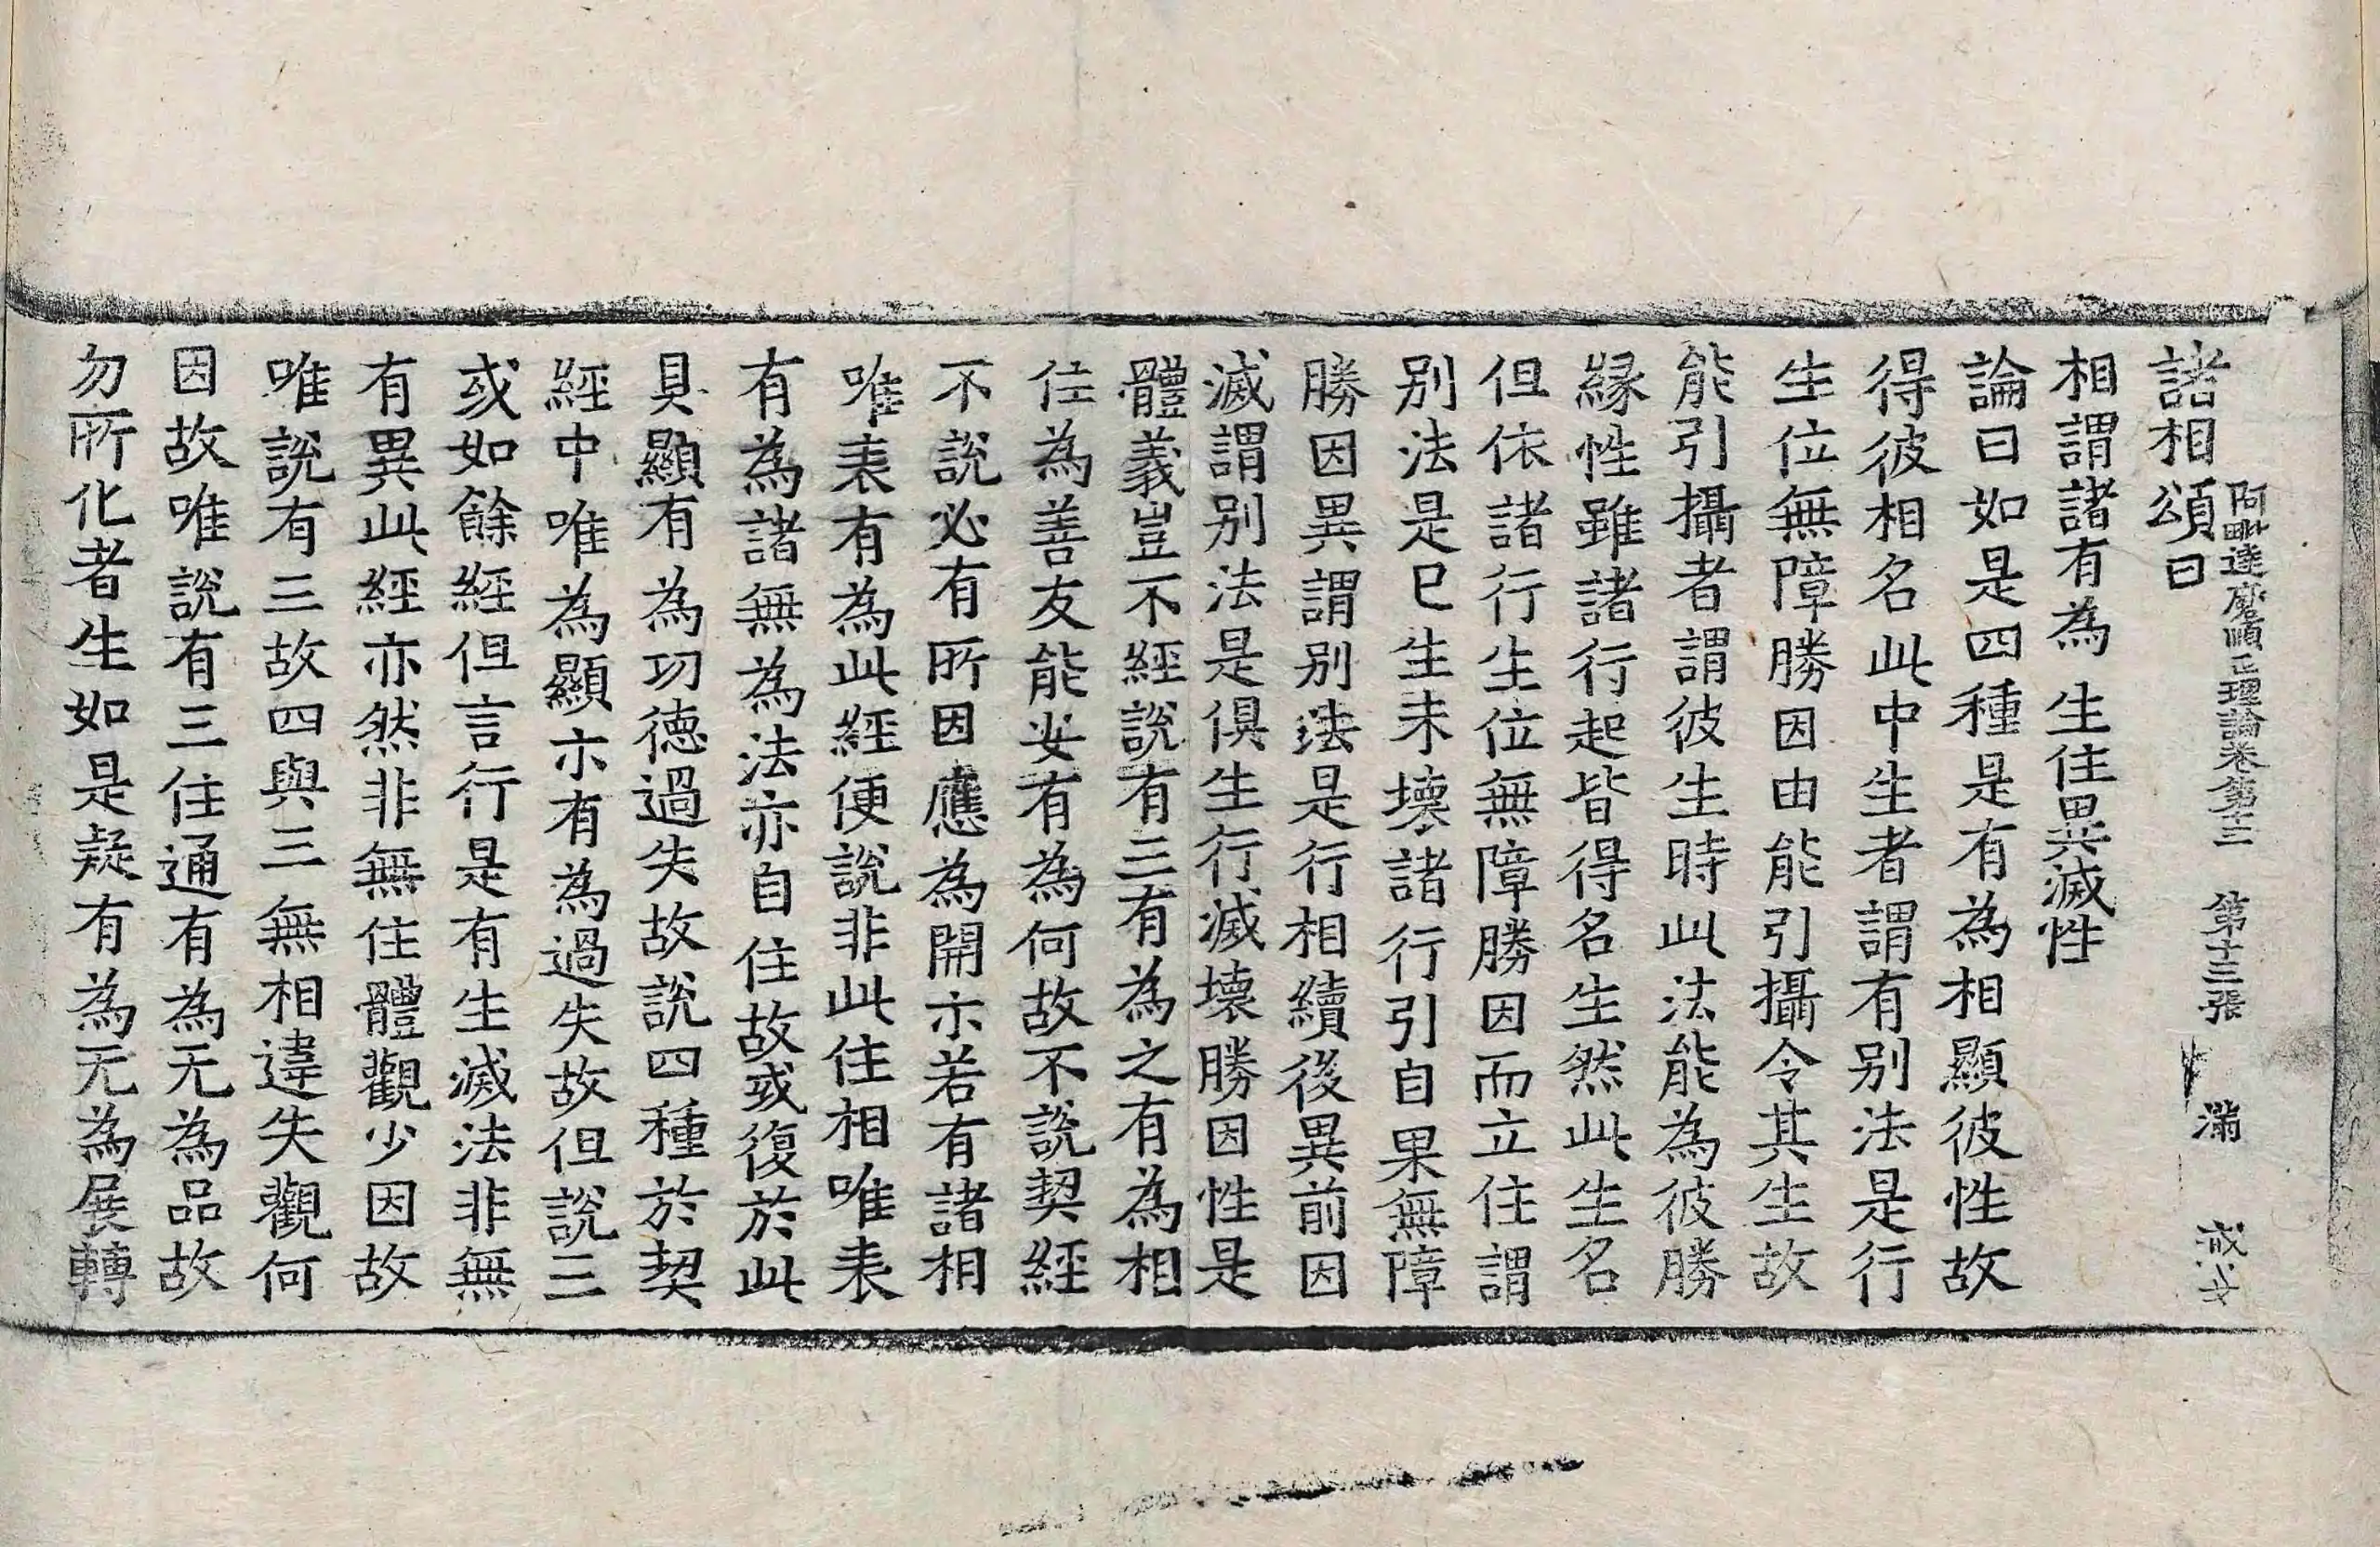 阿毗達磨順正理論卷第十三　第十三張　滿
諸相頌曰
相謂諸有為　生住異滅性
論曰如是四種是有為相顯彼性故
得彼相名此中生者謂有别法是行
生位無障勝因由能引攝令其生故
能引攝者謂彼生時此法能為彼勝
縁性雖諸行起皆得名生然此生名
但依諸行生位無障勝因而立住謂
别法是已生未壞諸行引自果無障
勝因異謂别法是行相續後異前因
滅謂别法是俱生行滅壞勝因性是
體義豈不經說有三有為之有為相
住為善友能安有為何故不說契經
不說必有所因應為開示若有諸相
唯表有為此經便說非此住相唯表
有為諸無為法亦自住故或復於此
具顯有為功德過失故說四種於契
經中唯為顯示有為過失故但說三
或如餘經但言行是有生滅法非無
有異此經亦然非無住體觀少因故
唯說有三故四與三無相違失觀何
因故唯說有三住通有為无為品故
勿所化者生如是疑有為无為展轉